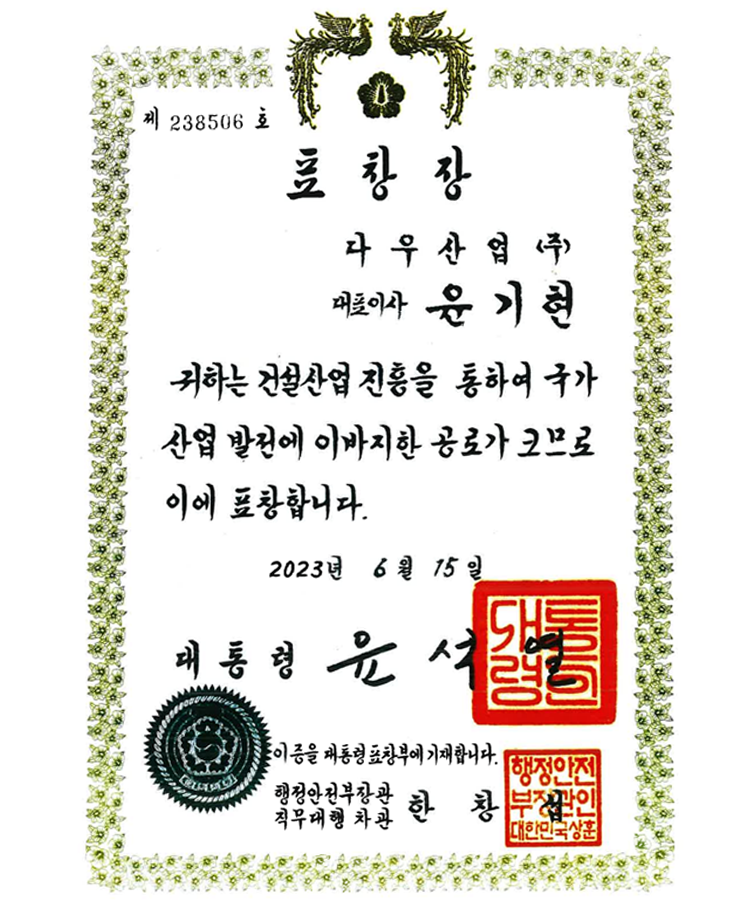 제 238506 호
표창장
다우산업 (주)
대표이사 윤기현
귀하는 건설산업 진흥을 통하여 국가
산업 발전에 이바지한 공로가 크므로
이에 표창합니다.
2023년 6월 15일
대통령 윤석열
대통령의인
이 증을 대통령표창부에 기재합니다.
행정안전부장관
직무대행 차관 한창섭
행정안전
부장관인
대한민국상훈